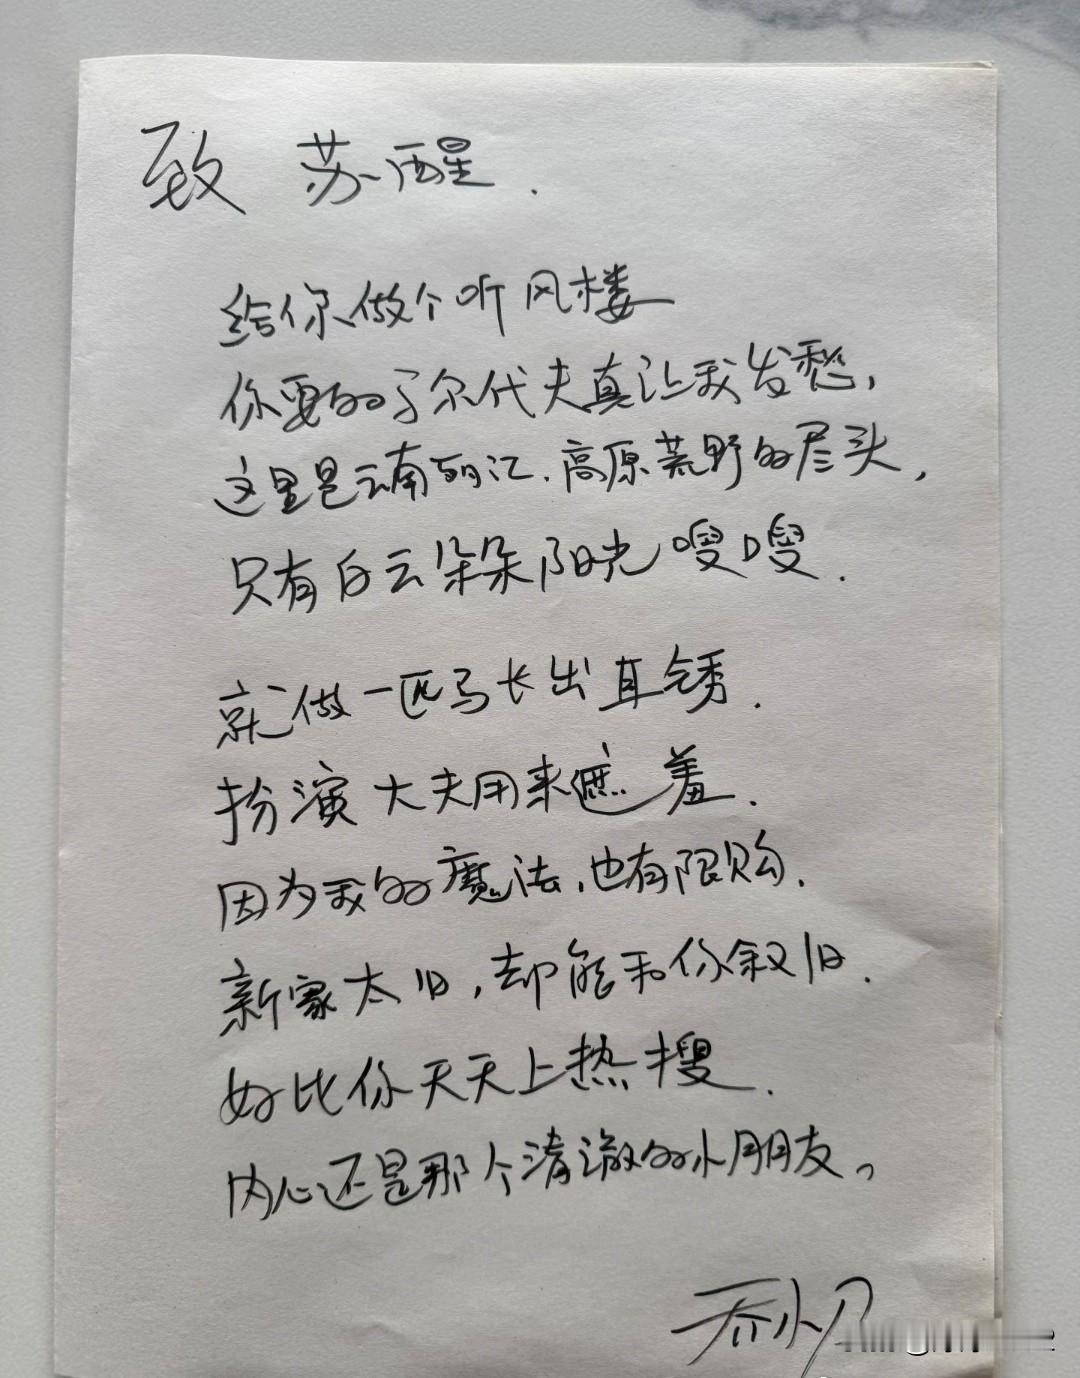 致 苏醒.
给你做个听风楼
你要的了尔代夫真让我发愁,
这里是云南丽江.高原荒野的尽头,
只有白云朵朵阳光嗖嗖.
就做一匹马长出耳锈.
扮演大夫用来遮羞.
因为我的魔法,也有限购.
新家太旧,却能和你叙旧.
好比你天天上热搜.
内心还是那个清澈的小朋友。
乔小刀